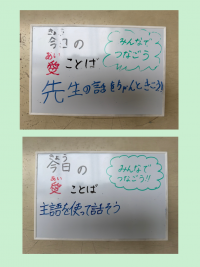 きょう
今日の
あい
愛ことば
みんなで
つなごう
先生の話をちゃんときこう
きょう
今日の
あい
愛ことば
みんなで
つなごう!!
主語を使って話そう